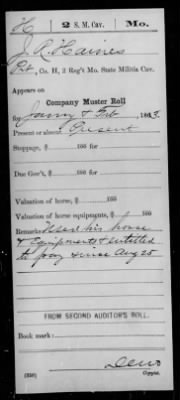 H 2 S. M. Cav. Mo.
J. R. Haines
Pvt, Co. H, 2 Reg't Mo. State Militia Cav.
Appears on
Company Muster Roll
for Jany & Feb, 1863.
Present or absent Present
Stoppage, $ 100 for
Due Gov't, $ 100 for
Valuation of horse, $ 100
Valuation of horse equipments, $ 100
Remarks: Used his horse
& Equipments & entitled
to pay since Aug 25
FROM SECOND AUDITOR'S ROLL.
Book mark:
(358)
Copyist.